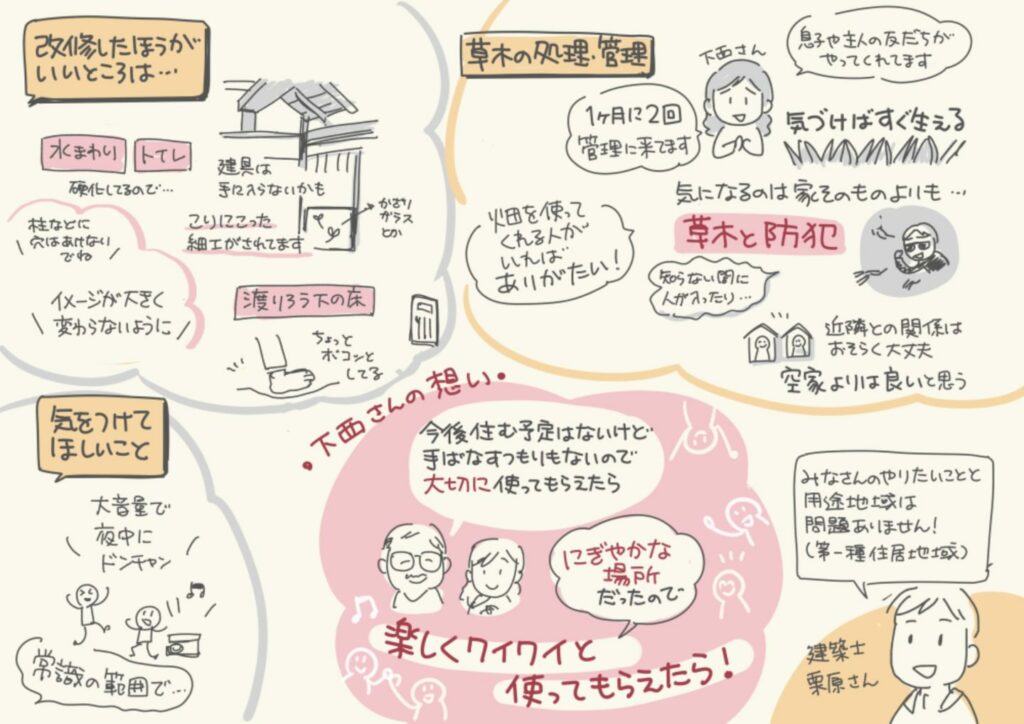 改修したほうが
いいところは…
水まわり
トイレ
硬化してるので…
建具は
手に入らないかも
こりにこった
細工がされてます
かざり
ガラス
とか
柱などに
穴はあけない
でね
イメージが大きく
変わらないように
渡りろう下の床
ちょっと
ボコンと
してる
草木の処理・管理
下西さん
息子や主人の友だちが
やってくれてます
1ヶ月に2回
管理に来てます
気づけばすぐ生える
気になるのは家そのものよりも…
草木と防犯
畑を使って
くれる人が
いれば
ありがたい！
知らない間に
人が入ったり…
近隣との関係は
おそらく大丈夫
空家よりは良いと思う
気をつけて
ほしいこと
大音量で
夜中に
ドンチャン
常識の範囲で…
・下西さんの想い・
今後住む予定はないけど
手ばなすつもりもないので
大切に使ってもらえたら
にぎやかな
場所
だったので
楽しくワイワイと
使ってもらえたら！
みなさんのやりたいことと
用途地域は
問題ありません！
（第一種住居地域）
建築士
栗原さん